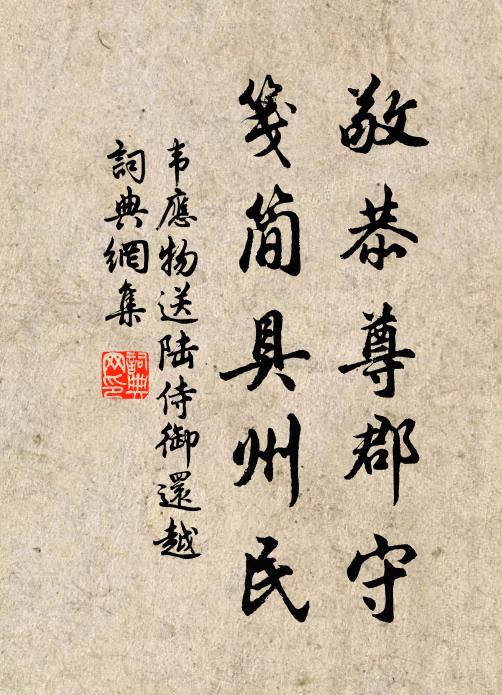 敬恭尊郡守
笺简具州民
韦應物送陆侍御還越
詞典網集
詞典网印